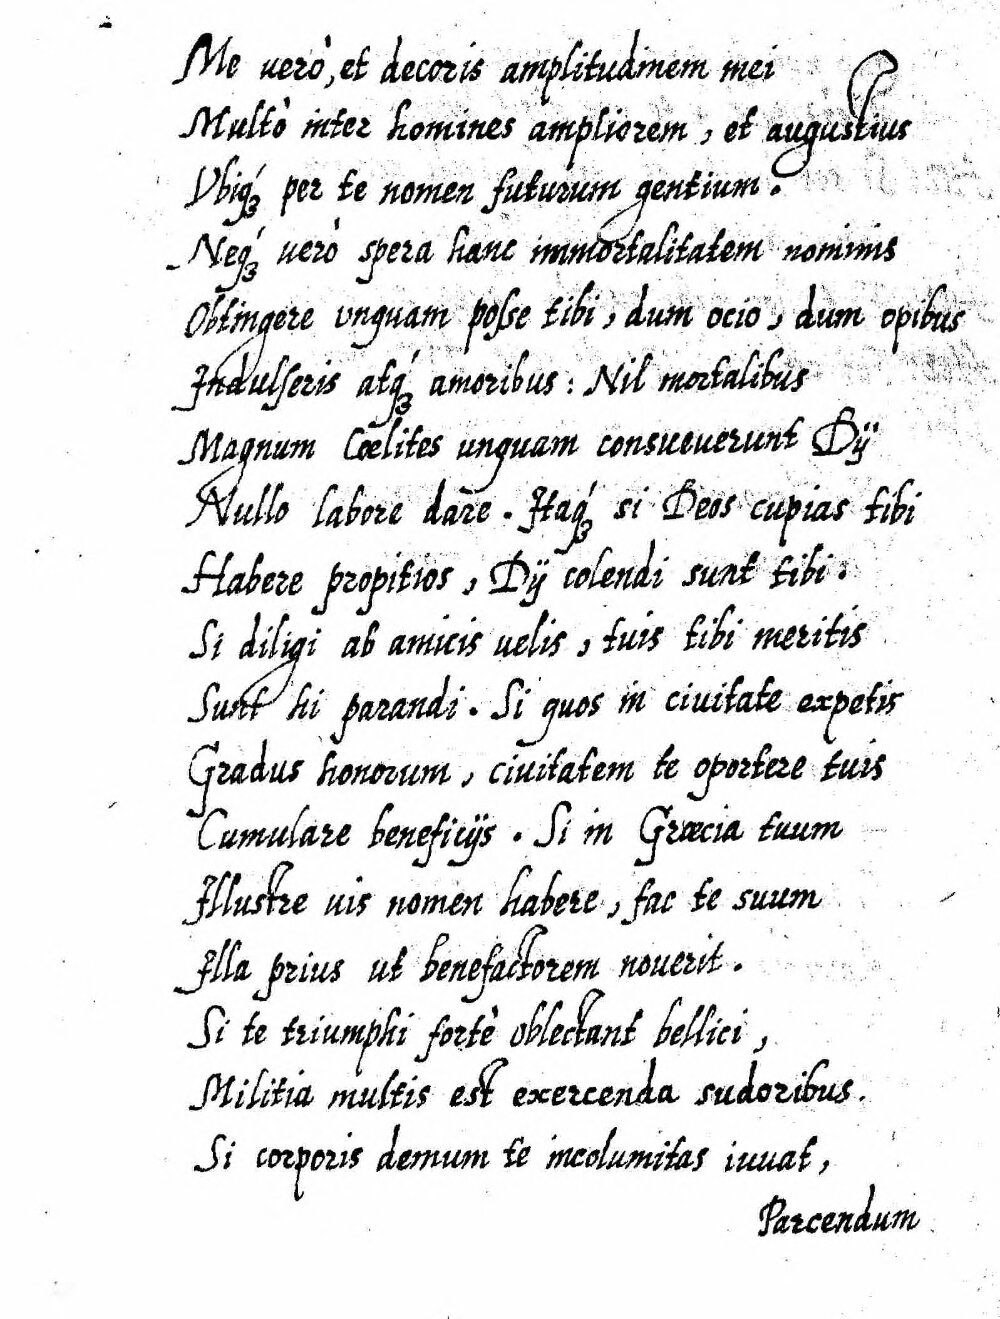 Me verò, et decoris amplitudinem mei
Multò inter homines ampliorem, et augustius
Vbiq́ꝫ per te nomen futurum gentium.
Neq́ꝫ uerò spera hanc immortalitatem nominis
Obtingere vnquam poſse tibi, dum ocio, dum opibus
Indulſeris atq́ꝫ amoribus: Nil mortalibus
Magnum Cœlites unquam consueuerunt Dÿ
Nullo labore dare. Itaq́ꝫ si Deos cupias tibi
Habere propitios, Dÿ colendi sunt tibi.
Si diligi ab amicis uelis, tuis tibi meritis
Sunt hi parandi. Si quos in ciuitate expetis
Gradus honorum, ciuitatem te oportere tuis
Cumulare beneficÿs. Si in Græcia tuum
Illustre uis nomen habere, fac te suum
Illa prius ut benefactorem nouerit.
Si te triumphi fortè oblectant bellici,
Militia multis est exercenda sudoribus.
Si corporis demum te incolumitas iuuat,
Parcendum